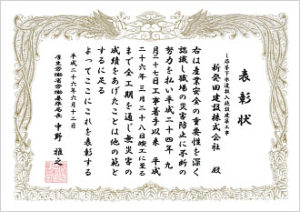 表彰状
新発田建設株式会社 殿
右は産業安全の重要性を深く
認識し職場の災害防止に不断の
努力を払い平成二十四年九
月二十七日工事着手以来 平成
二十六年三月二十八日竣工に至る
まで全工期を通じ無災害の
成績をあげたことは他の範と
するに足る
よってここにこれを表彰する
平成二十六年六月十二日
厚生労働省労働基準局長 中野雅之